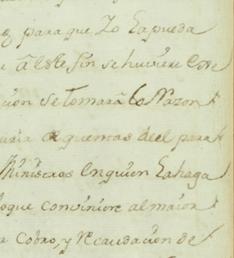 para que lo la pueda
a este fin se huviere
cion se tomará la Razon
quentas de el para
Ministros en quien la haga
lo que conviniere al maior
Cobro, y Recaudacion de